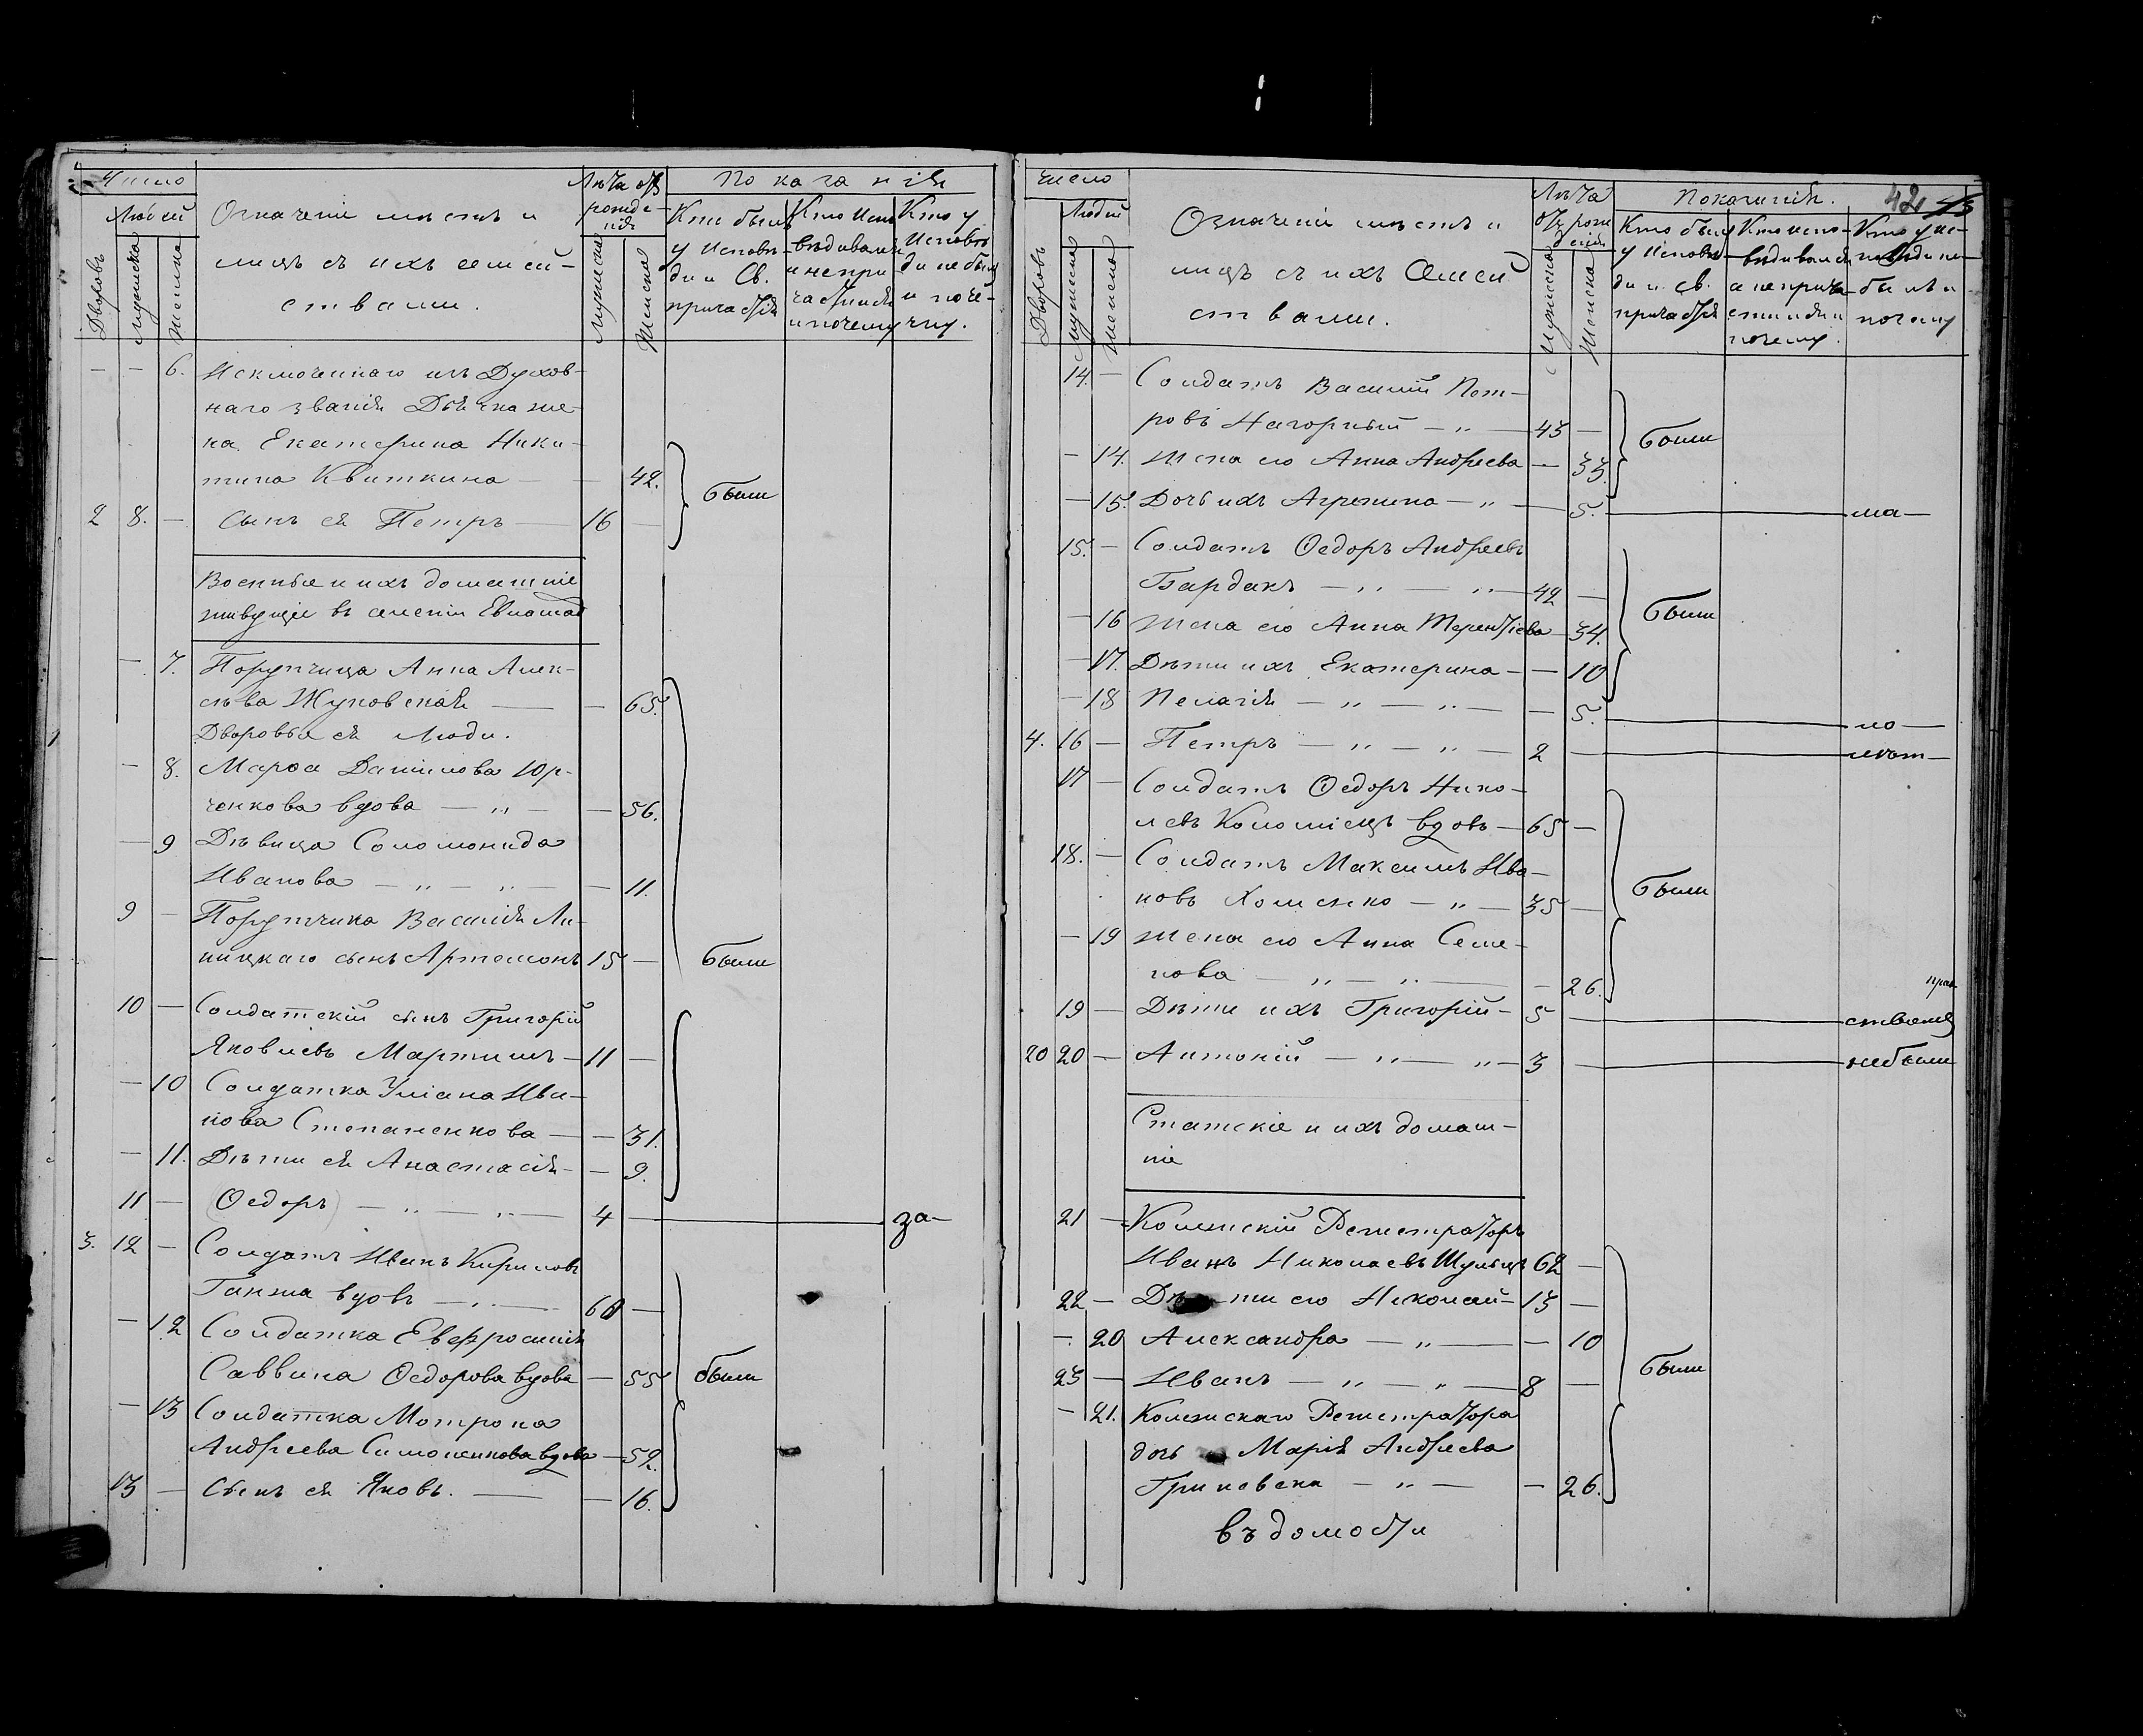 Число
Людей
Дворовъ
мужеска
женска
Означеніе мѣстъ и
лицъ съ ихъ семей-
ствами.
Лѣта отъ
рожде-
нія
Мужеска
Женска
Показанія
Кто былъ
у Исповѣ-
ди и Св.
причастія
Кто Испо
вѣдывался
и не при
частился
и почему
Кто у
Исповѣ
ди не былъ
и поче-
чму.
— — 6. Исключеннаго изъ Духов-
наго званія Дьячка же-
на Екатерина Ники-
тина Квиткина — — 42.
были
2 8. — Сынъ ея Петръ — 16 —
Военные и ихъ домашніе
живущіе въ
— 7. Порутчица Анна Алек-
сѣва Жуковская — — 65.
Дворовые ея Люди.
— 8. Марѳа Данилова Юр-
ченкова вдова — „ — — 56.
— 9 Дѣвица Соломонида
Иванова — „ — „ — — 11.
9 — Порутчика Василія Ли-
ницкаго сынъ Артемонъ 15 — были
10 — Солдатскій сынъ Григорій
Яковлевъ Мартишъ — 11 —
— 10 Солдатка Уліана Ива-
нова Степаненкова — — 31.
— 11. Дѣти ея Анастасія — — 9.
11 — Ѳедоръ — „ — „ — 4 — за-
3. 12 — Солдатъ Иванъ Кириловъ
Ганжа вдовъ — „ — 60 —
— 12 Солдатка Евфросинія
Саввина Ѳедорова вдова — 55 были
— 13 Солдатка Мотрона
Андреева Симоненкова вдова — 52.
13 — Сынъ ея Яковъ. — — 16.
Число
Людей
Дворовъ
Мужеска
женска
Означеніе мѣстъ и
лицъ съ ихъ Семей
ствами.
Лѣта
отъ рож
денія
мужеска
Женска
Показанія.
42 43
Кто былъ
у Исповѣ
ди и Св.
причастія
Кто испо-
вѣдывался
а не прича-
стился и
почему.
Кто у ис-
повѣди не-
былъ и
почему
14. — Солдатъ Василій Пет-
ровъ Нагорный — „ — 43 —
были
— 14. Жена его Анна Андреева — 33.
— 15. Дочь ихъ Агрепина — „ — 5. — ма —
15. — Солдатъ Ѳедоръ Андреевъ
Бардакъ — „ — „ — 42 —
— 16 Жена его Анна Терентіева — 34. были
— 17. Дѣти ихъ Екатерина — — 10
— 18 Пелагія — „ — „ — — 5. — ло —
4. 16 — Петръ — „ — „ — 2 — лѣт —
17 — Солдатъ Ѳедоръ Нико-
левъ Коломіецъ вдовъ — 65 —
18. — Солдатъ Максимъ Ива-
новъ Хоменко — „ — 35 — были
— 19 Жена его Анна Семе-
нова — „ — „ — — 26.
19 — Дѣти ихъ Григорій — 5 —
20 20 — Антоній — „ — „ — 3 — небыли
Статскіе и ихъ домаш-
ніе
21 — Колежскій Регистраторъ
Иванъ Николаевъ Шульцъ 62 —
22 — Дѣ-ти его Николай — 13 —
— 20 Александра — „ — — 10
23 — Иванъ — „ — „ — 8 — были
— 21. Колежскаго Регистратора
дочь Марія Андреева
— „ — — 26.
вѣдомости